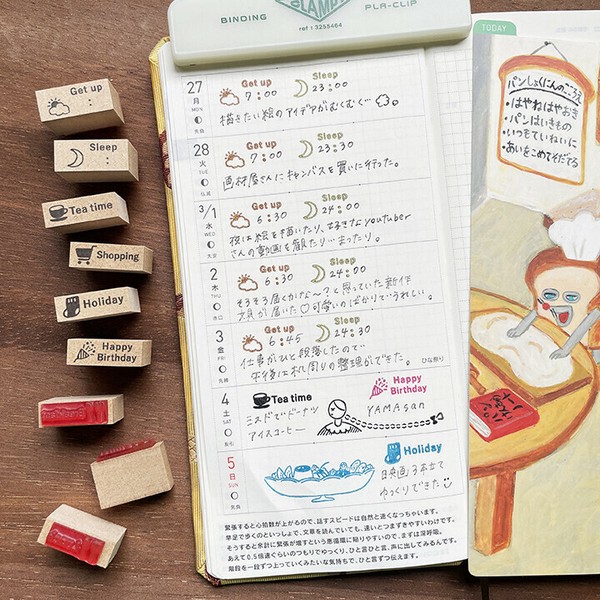 BINDING
CLAMPY
PLA-CLIP
ref : 3255464
TODAY
Get up
:
Sleep
:
Tea time
Shopping
Holiday
Happy
Birthday
27
月
MON
先負
Get up
7:00
Sleep
23:00
描きたい絵のアイデアがむくむく…
28
火
TUE
仏滅
Get up
7:00
Sleep
23:30
画材屋さんにキャンバスを買いに行った。
3/1
水
WED
大安
Get up
6:30
Sleep
24:00
夜は絵を描いたり、好きなyoutuber
さんの動画を観たり…まったり。
2
木
THU
赤口
Get up
6:30
Sleep
24:00
そろそろ届くかな〜?と思っていた新作
文具が届いた♡可愛いのばかりでうれしい。
3
金
FRI
先勝
Get up
6:45
Sleep
24:30
仕事がひと段落したので
午後は机周りの整理ができた。
ひな祭り
4
土
SAT
友引
Tea time
ミスドでドーナツ
アイスコーヒー
Happy
Birthday
YAMAさん
5
日
SUN
先負
Holiday
映画3本立て
ゆっくりできた
緊張すると心拍数が上がるので、話すスピードは自然と速くなっちゃいます。
早足で歩くのといっしょで、文章を読んでいても、速いとつまずきやすいわけです。
そうすると余計に緊張が増すという悪循環に陥りやすいので、まずは深呼吸。
あえて0.5倍速ぐらいのつもりでゆっくり、ひと言ひと言、声に出してみるんです。
階段を一段ずつ上っていくみたいな気持ちで、ひと言ずつ伝えます。
パンしょくにんのこころえ
・はやねはやおき
・パンはいきもの
・いつもていねいに
・あいをこめてそだてる